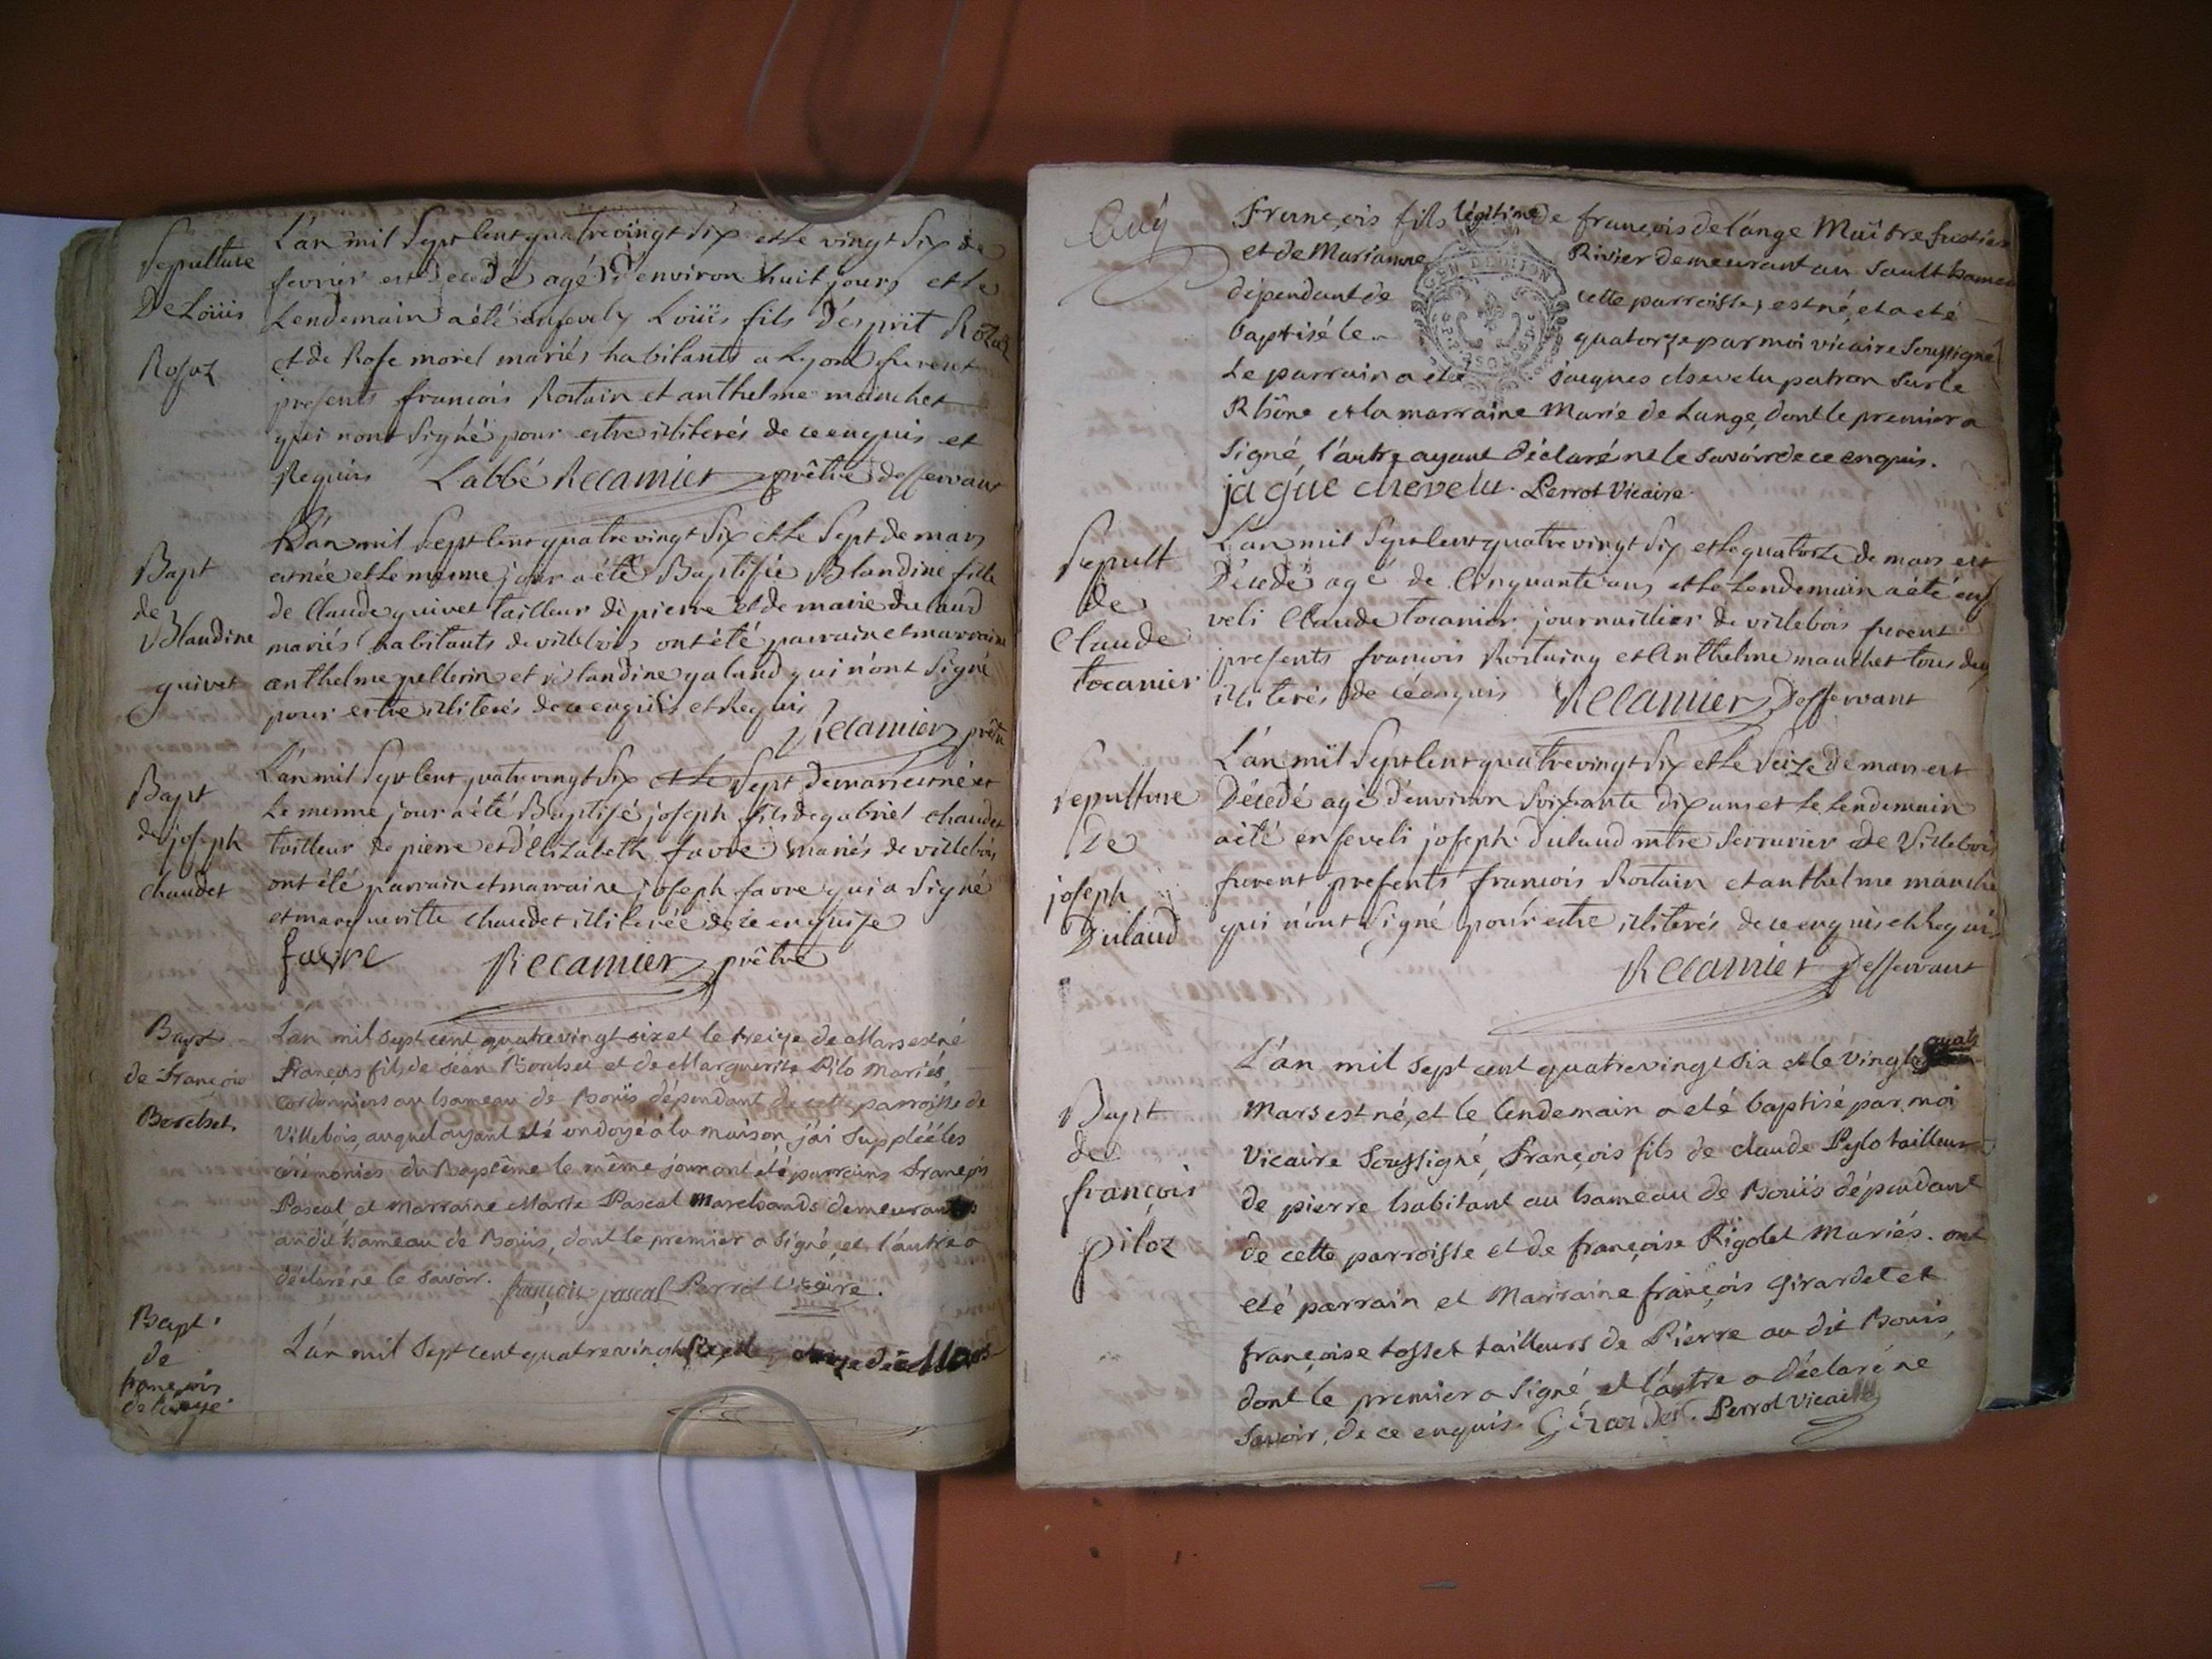 Sepulture
De Loüis
Rosaz
L'an mil Sept Cent quatrevingt Six et le vingt Six de
fevrier est decedé agé d'environ huit jours et le
Lendemain a été ensevely Loüis fils d'esprit Rozaz
et de Rose morel mariés habitants a Lyon furent
presents francois Rostain et anthelme manchet
qui n'ont Signé pour estre illiterés de ce enquis et
Requis L'abbé Recamier prêtre desservant
Bapt
de
Blandine
guivet
L'an mil Sept Cent quatrevingt Six et le Sept de mars
est née et le meme jour a été Baptisée Blandine fille
de Claude guivet tailleur de pierre et de marie dulaud
mariés habitants de villebois ont été parrain et marraine
anthelme pellerin et blandine galand qui n'ont Signé
pour estre illiterés de ce enquis et Requis
Recamier prêtre
Bapt
de joseph
chaudet
L'an mil Sept Cent quatrevingt Six et le Sept de mars est né et
Le meme jour a été Baptisé joseph fils de gabriel chaudet
tailleur de pierre et d'Elizabeth favre mariés de villebois
ont été parrain et marraine joseph favre qui a Signé
et margueritte chaudet illiterée de ce enquise
favre Recamier prêtre
Bapt
de François
Borchet.
L'an mil sept cent quatrevingt six et le treize de Mars est né
François fils de Jean Borchet et de Marguerite Pilo Mariés,
cordonniers au hameau de Bouis dépendant de cette parroisse de
Villebois, auquel ayant été ondoyé à la maison, j'ai Suppléé les
cérémonies du Baptême le même jour ont été parrains François
Pascal et Marraine Marie Pascal Marchands demeurants
au dit hameau de Bouis, dont le premier a signé et l'autre a
déclaré ne le savoir. françois pascal Perrot Vicaire.
Bapt.
de
françois
delange.
L'an mil sept cent quatrevingt Six et le de Mars
François fils légitime de françois delánge Maitre fustier
et de Marianne Rivier demeurant au Sault hameau
dépendant de cette parroisse, est né, et a eté
baptisé le quatorze par moi vicaire Soussigné
Le parrain a eté Jacques chevelu patron sur le
Rhône et la marraine Marie de Lange, dont le premier a
signé, l'autre ayant déclaré ne le savoir de ce enquis.
jaque chevelu. Perrot Vicaire.
Sepult
de
Claude
tocanier
L'an mil Sept Cent quatrevingt Six et le quatorze de mars est
Décedé agé de Cinquante ans et le Lendemain a été ense
veli Claude tocanier journaillier de villebois furent
presents francois Rostaing et Anthelme manchet tous deux
illiterés de ce enquis Recamier Desservant
Sepulture
De
joseph
Dulaud
L'an mil Sept Cent quatrevingt Six et le Seize de mars est
Décedé agé d'environ Soixante dix ans et le Lendemain
a été enseveli joseph dulaud mtre Serrurier de Villebois
furent presents francois Rostain et anthelme manchet
qui n'ont Signé pour estre illiterés de ce enquis et Requis
Recamier Desservant
Bapt
de
françois
piloz
L'an mil sept cent quatrevingt six et le vingt quatre
Mars est né, et le lendemain a eté baptisé par moi
vicaire Soussigné, François fils de claude Pylo tailleur
de pierre habitant au hameau de Bouis dépendant
de cette parroisse et de françoise Rigolet Mariés. ont
eté parrain et Marraine françois Girardet et
françoise tosset tailleurs de Pierre au dit Bouis,
dont le premier a signé, et l'autre a déclaré ne
savoir, de ce enquis. Girardet. Perrot Vicaire